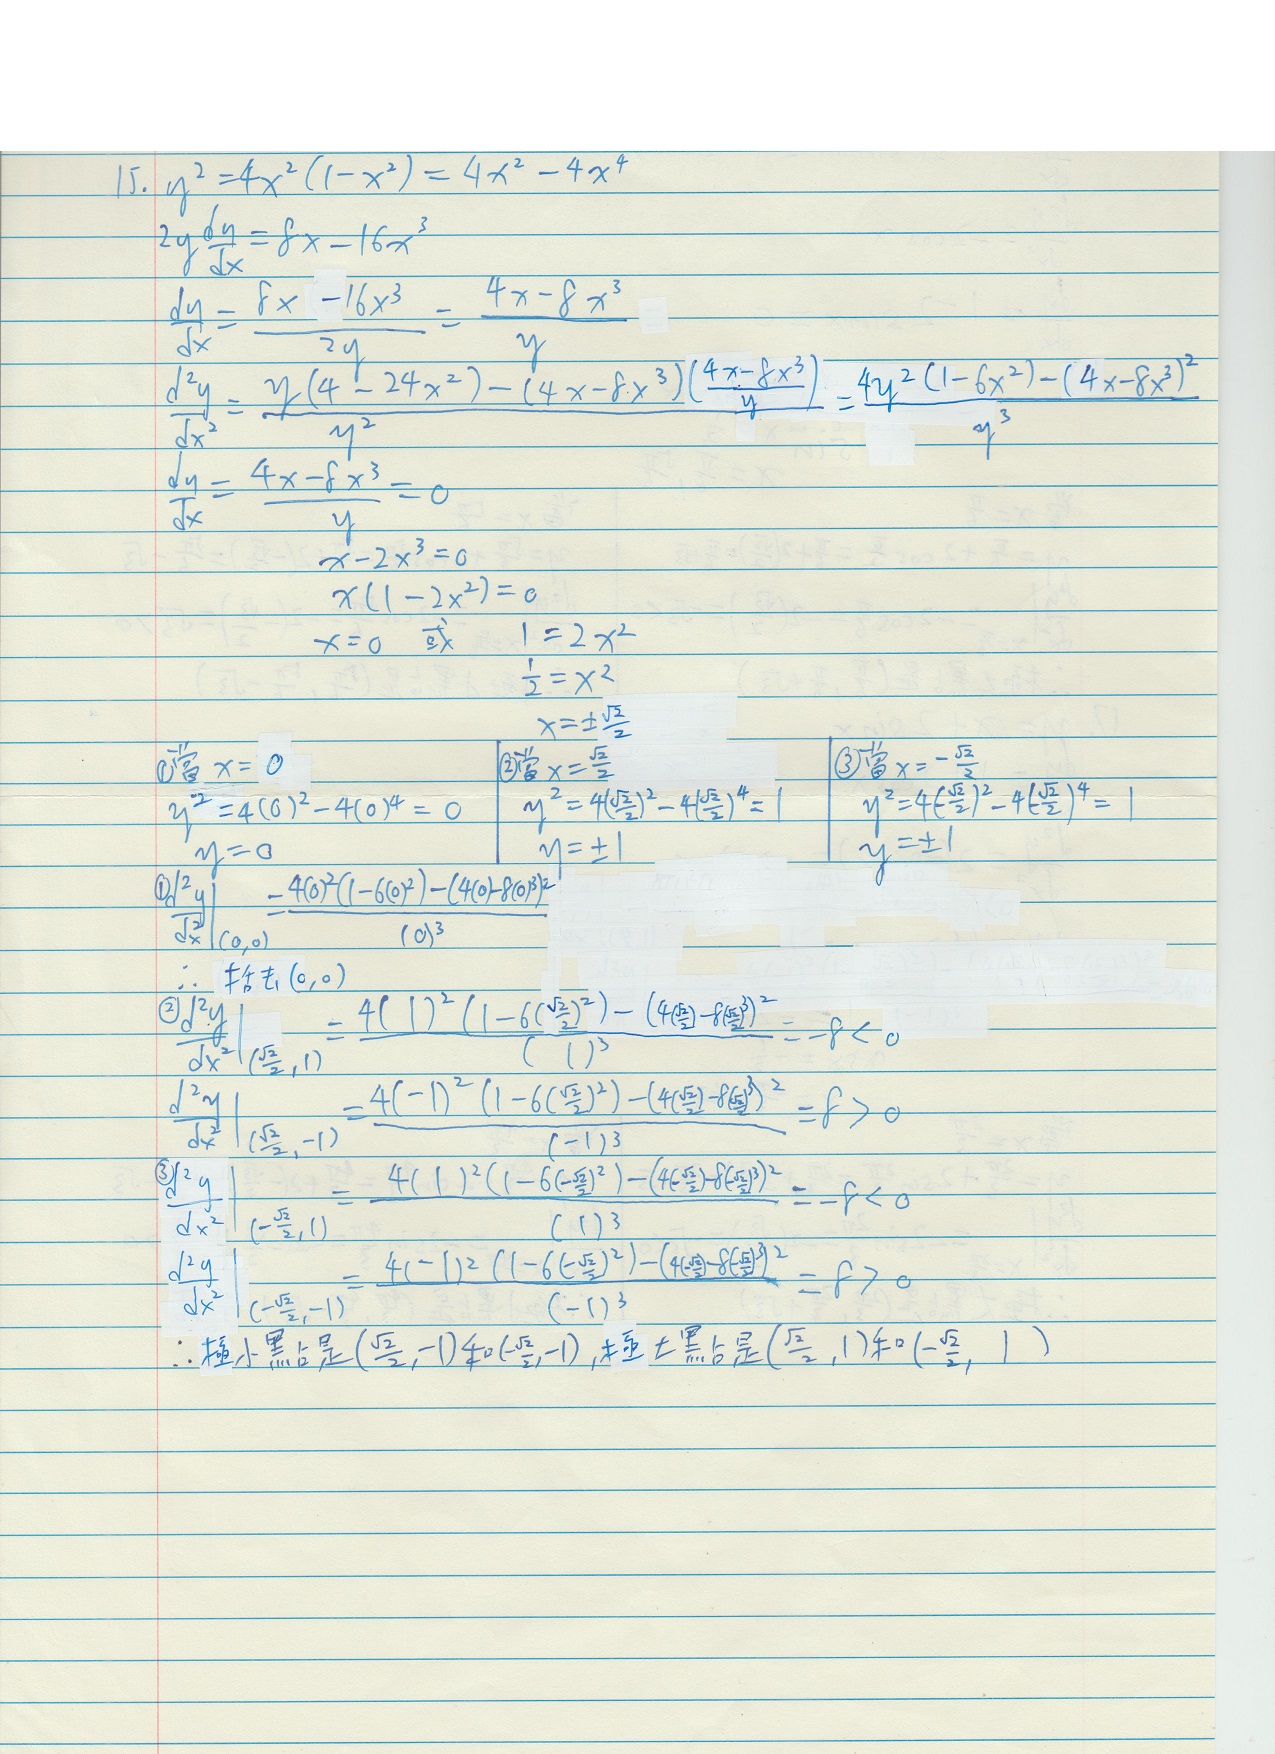 15. y² = 4x²(1-x²) = 4x² - 4x⁴
2y dy/dx = 8x - 16x³
dy/dx = (8x - 16x³)/(2y) = (4x - 8x³)/y
d²y/dx² = (y(4 - 24x²) - (4x - 8x³)((4x - 8x³)/y))/y² = (4y²(1-6x²) - (4x-8x³)²)/y³
dy/dx = (4x - 8x³)/y = 0
x - 2x³ = 0
x(1 - 2x²) = 0
x = 0 或 1 = 2x²
1/2 = x²
x = ±√2/2
①當 x = 0 ②當 x = √2/2 ③當 x = -√2/2
y² = 4(0)² - 4(0)⁴ = 0 y² = 4(√2/2)² - 4(√2/2)⁴ = 1 y² = 4(-√2/2)² - 4(-√2/2)⁴ = 1
y = 0 y = ±1 y = ±1
① d²y/dx² |(0,0) = (4(0)²(1-6(0)²) - (4(0)-8(0)³)²)/(0)³
∴ 捨去 (0,0)
② d²y/dx² |(√2/2, 1) = (4(1)²(1-6(√2/2)²) - (4(√2/2)-8(√2/2)³)²)/(1)³ = -8 < 0
d²y/dx² |(√2/2, -1) = (4(-1)²(1-6(√2/2)²) - (4(√2/2)-8(√2/2)³)²)/(-1)³ = 8 > 0
③ d²y/dx² |(-√2/2, 1) = (4(1)²(1-6(-√2/2)²) - (4(-√2/2)-8(-√2/2)³)²)/(1)³ = -8 < 0
d²y/dx² |(-√2/2, -1) = (4(-1)²(1-6(-√2/2)²) - (4(-√2/2)-8(-√2/2)³)²)/(-1)³ = 8 > 0
∴ 極小點是(√2/2, -1)和(-√2/2, -1), 極大點是(√2/2, 1)和(-√2/2, 1)